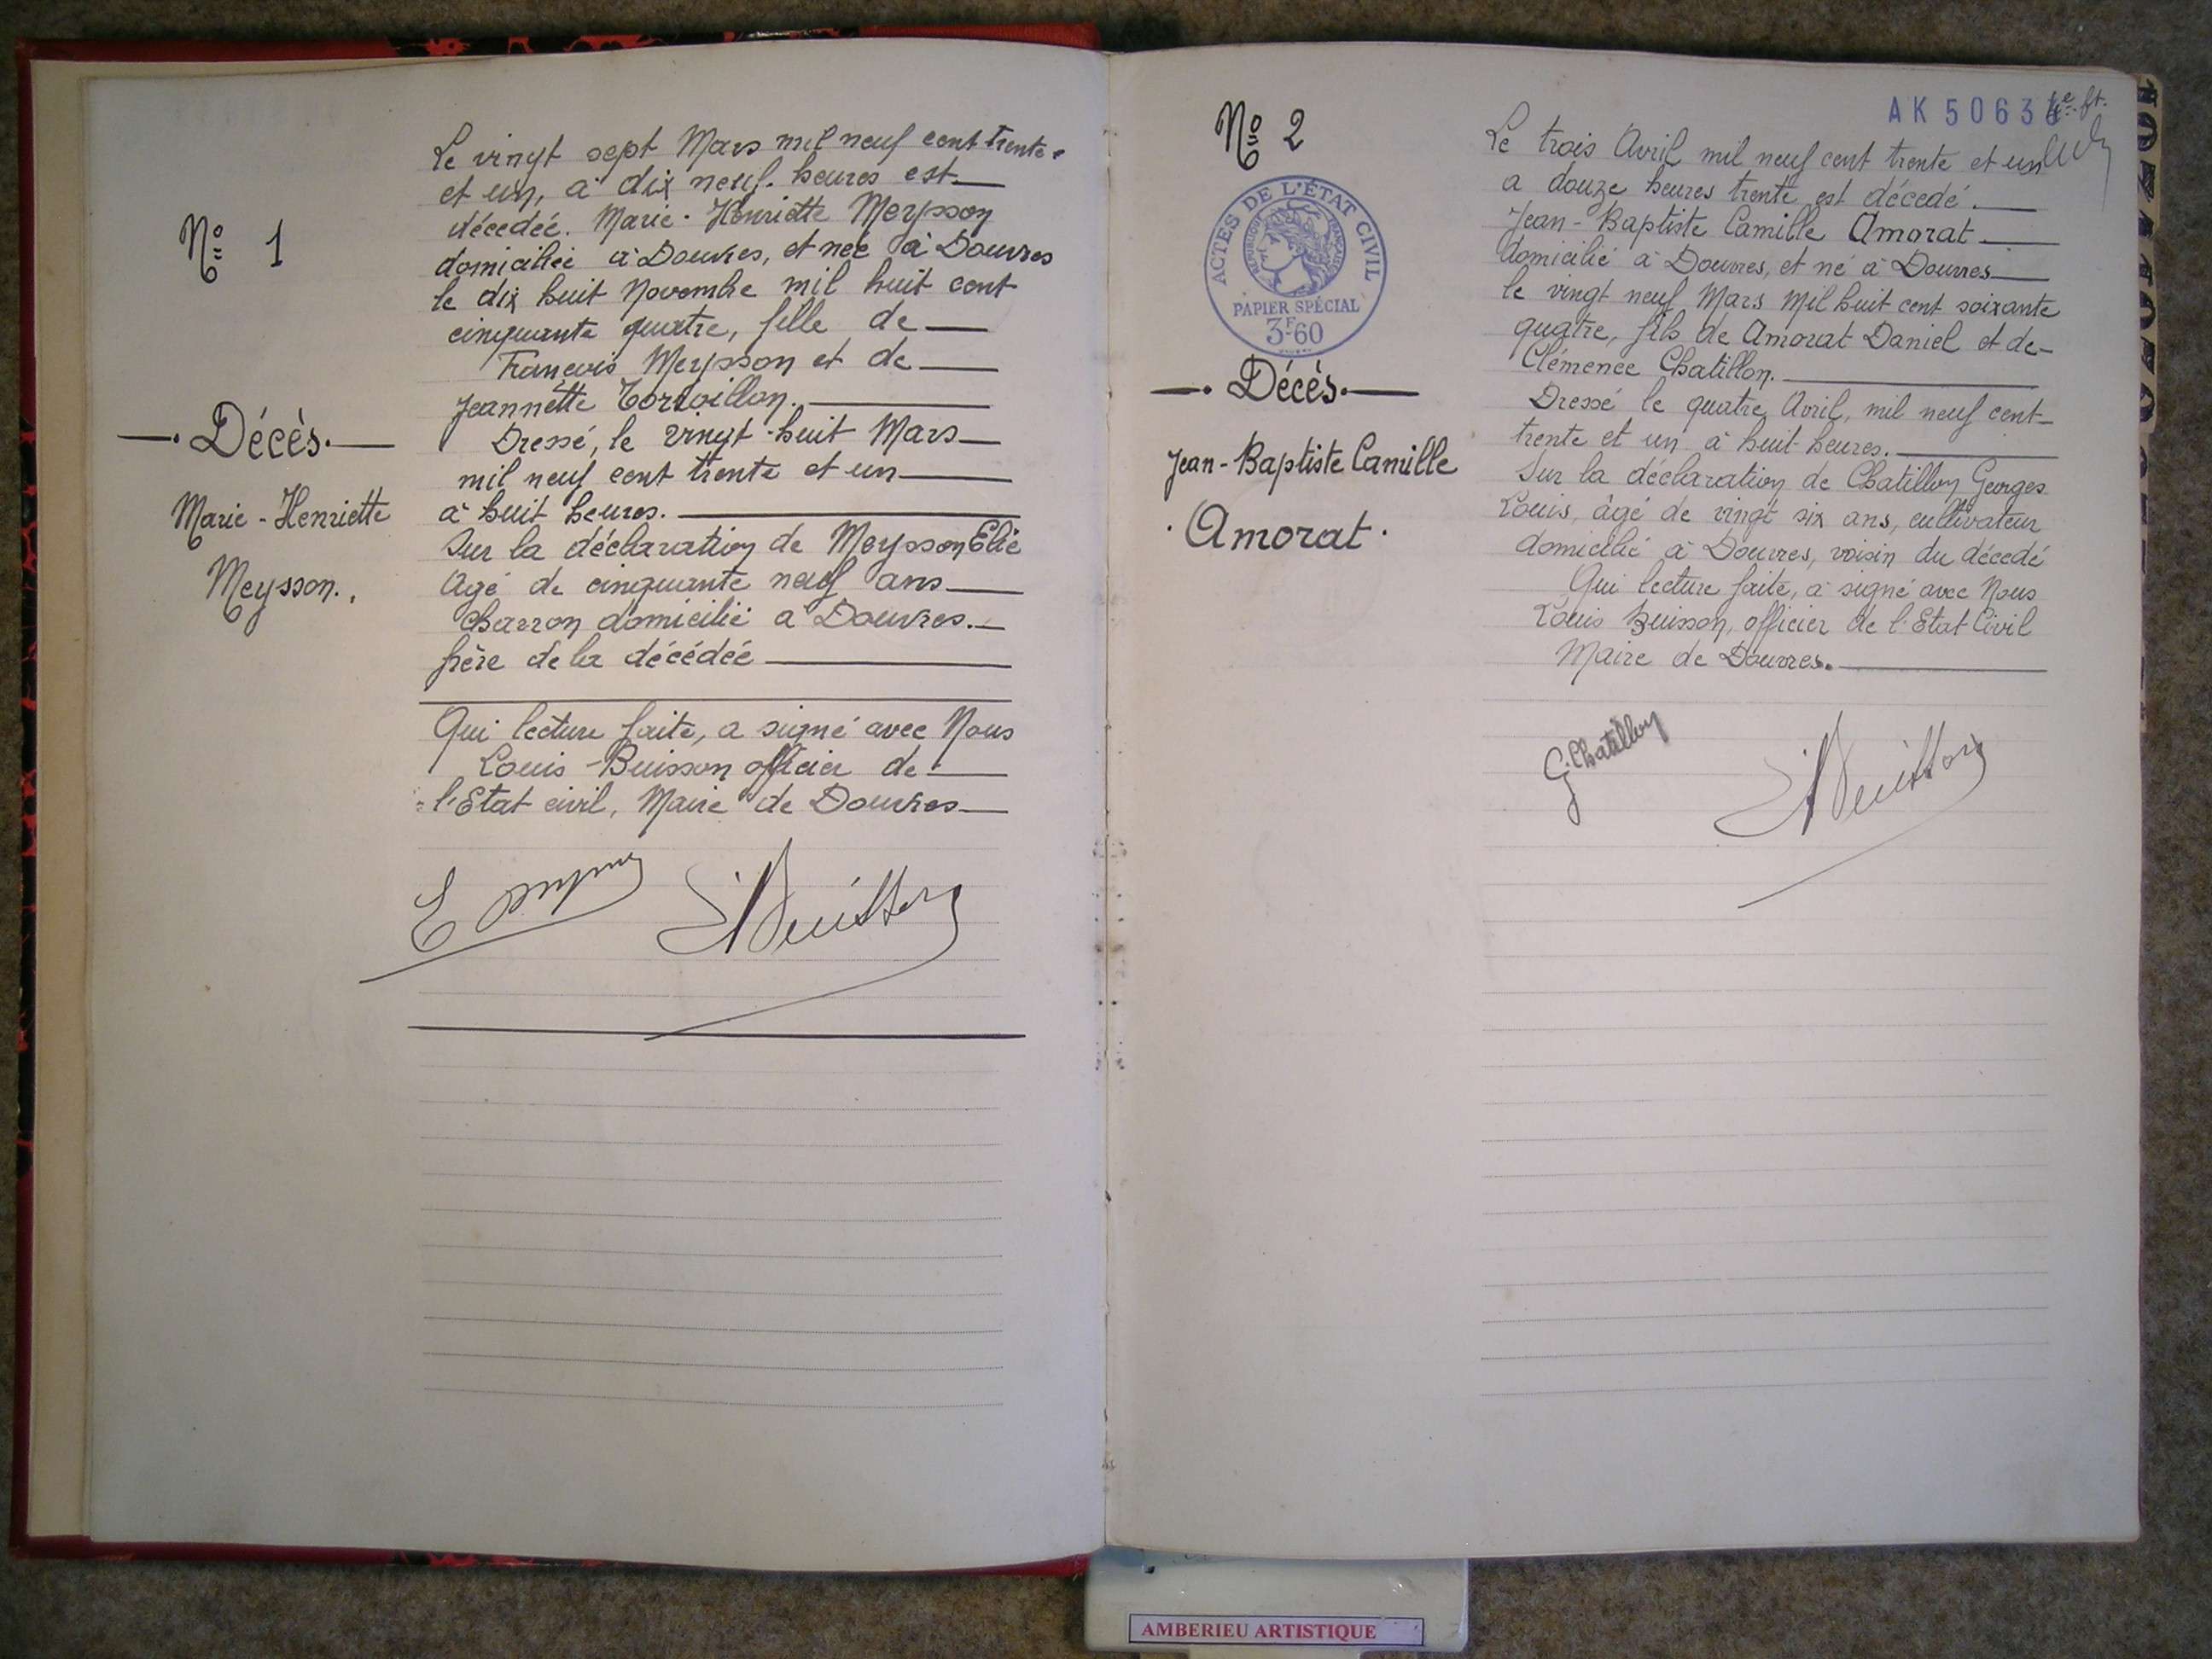 Nº 1
— . Décès. —
Marie - Henriette
Meysson.
Le vingt sept Mars mil neuf cent trente
et un, à dix neuf. heures est
décédée. Marie - Henriette Meysson
domiciliée à Douvres, et née à Douvres
le dix huit Novembre mil huit cent
cinquante quatre, fille de
François Meysson et de
Jeannette
Dressé, le vingt-huit Mars
mil neuf cent trente et un
à huit heures.
Sur la déclaration de Meysson Elie
Agé de cinquante neuf ans
Charron domicilié à Douvres.
frère de la décédée
Qui lecture faite, a signé avec Nous
Louis - Buisson officier de
l'Etat civil, Maire de Douvres
Nº 2
ACTES DE L'ÉTAT CIVIL
RÉPUBLIQUE FRANÇAISE
PAPIER SPÉCIAL
3F60
— . Décès. —
Jean - Baptiste Camille
. Amorat .
AK 5063
Le trois Avril mil neuf cent trente et un
a douze heures trente est décedé.
Jean - Baptiste Camille Amorat
domicilié à Douvres, et né à Douvres
le vingt neuf Mars mil huit cent soixante
quatre, fils de Amorat Daniel et de
Clémence Chatillon.
Dressé le quatre Avril, mil neuf cent
trente et un à huit heures.
Sur la déclaration de Chatillon Georges
Louis, âgé de vingt six ans, cultivateur
domicilié à Douvres, voisin du décedé
Qui lecture faite, a signé avec Nous
Louis Buisson, officier de l'Etat Civil
Maire de Douvres.
G. Chatillon
AMBERIEU ARTISTIQUE